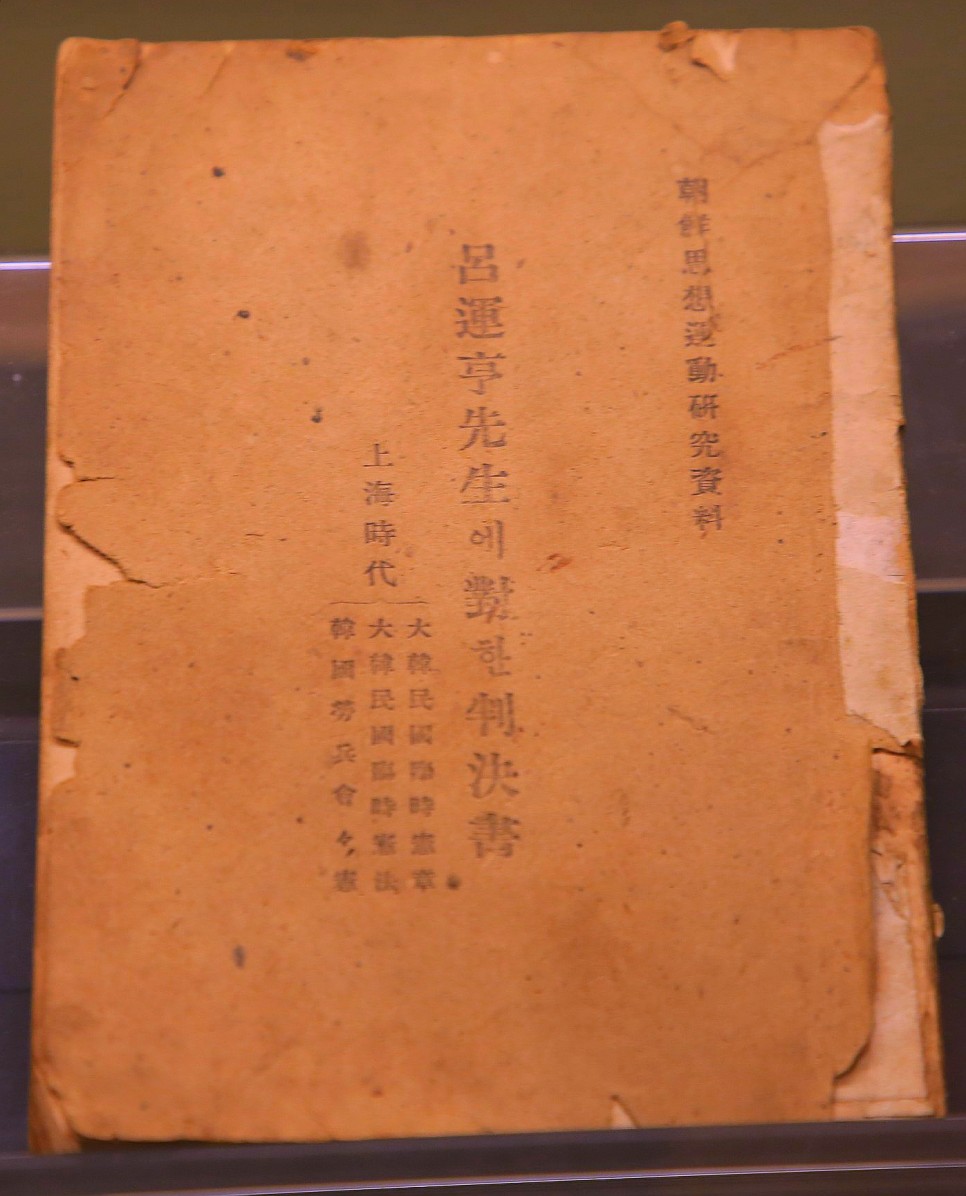 朝鮮思想運動研究資料
呂運亨先生에對한判決書
上海時代
大韓民國臨時憲章
大韓民國臨時憲法
韓國勞兵會々憲